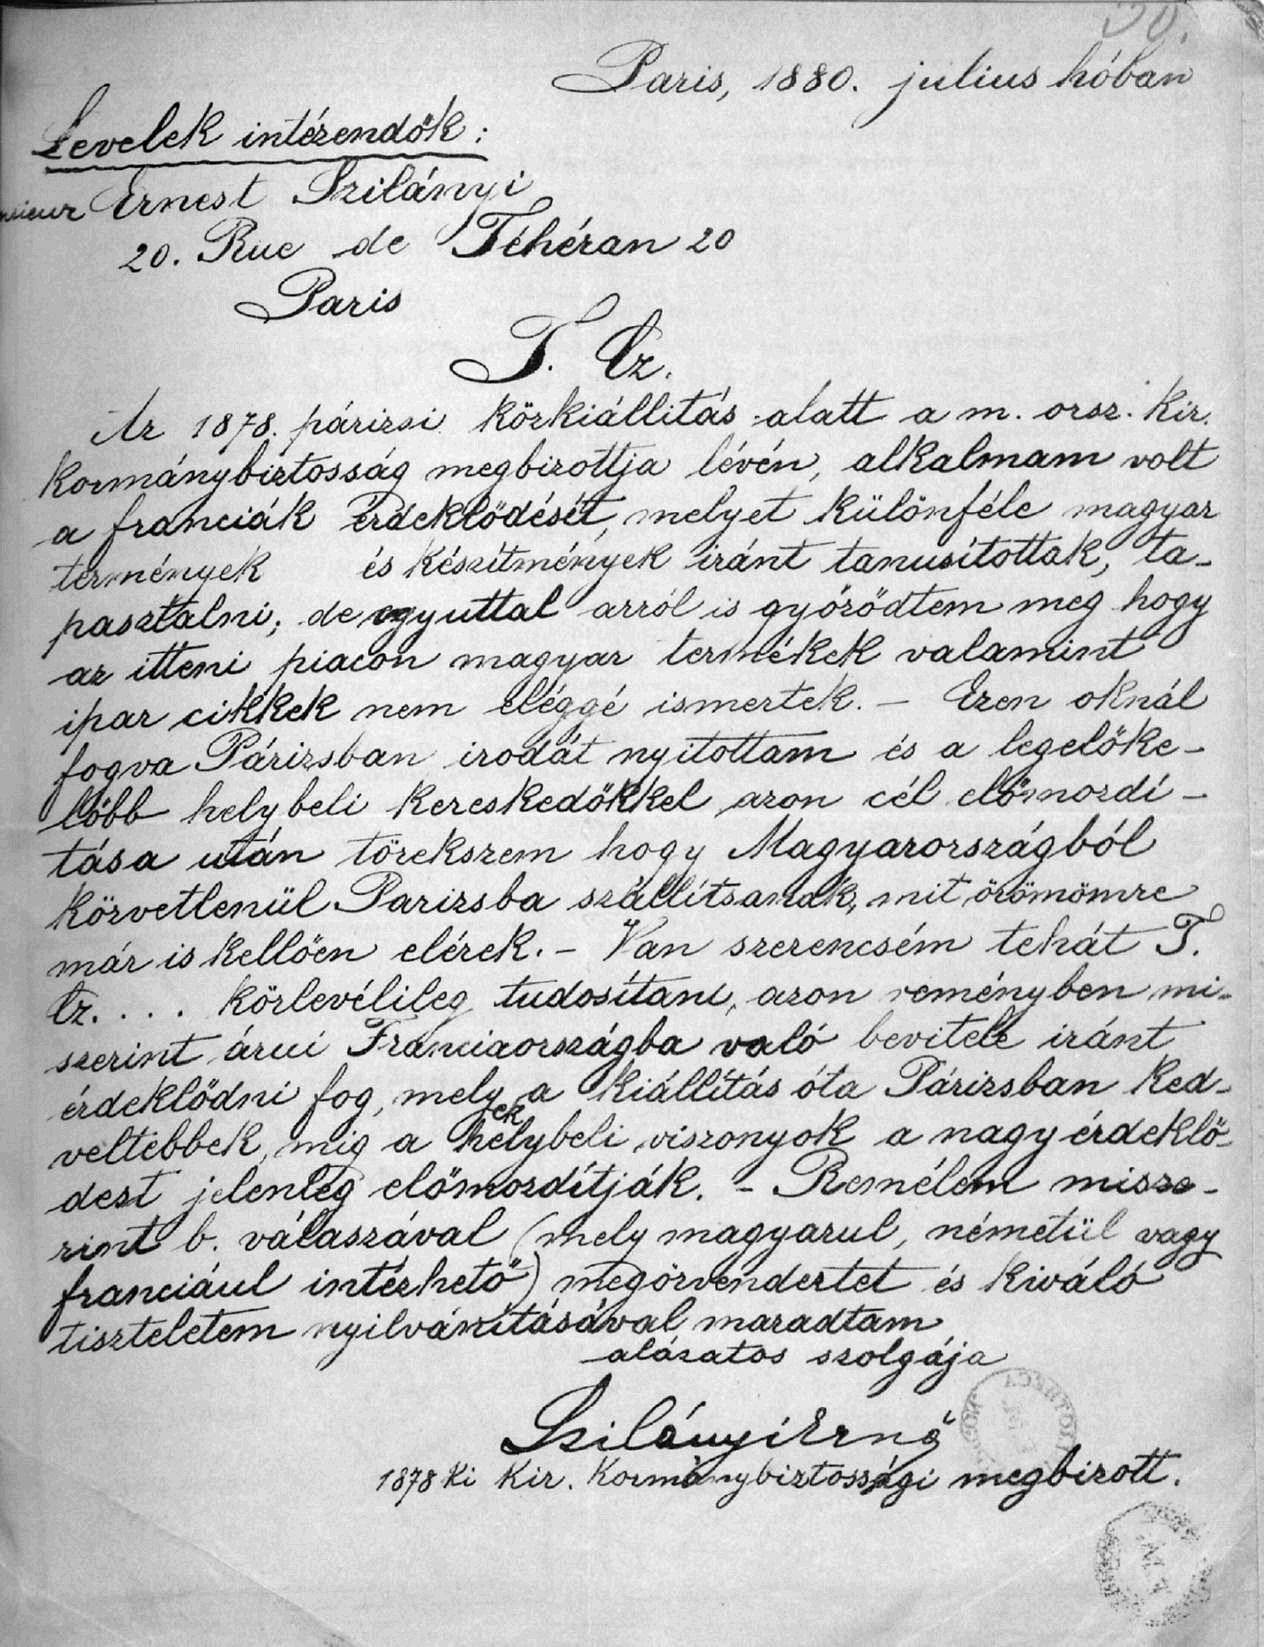 50.
Paris, 1880. julius hóban
Levelek intézendők:
Ernest Szilányi
20. Rue de Téhéran 20
Paris
T. Cz.
Az 1878. párizsi közkiállitás alatt a m. orsz. kir.
kormánybiztosság megbizottja lévén, alkalmam volt
a franciák érdeklődését, melyet különféle magyar
termények és készítmények iránt tanusítottak, ta-
pasztalni; de egyuttal arról is győződtem meg hogy
az itteni piacon magyar termékek valamint
ipar cikkek nem eléggé ismertek. – Ezen oknál
fogva Párizsban irodát nyitottam és a legelőke-
lőbb helybeli kereskedőkkel azon cél előmozdí-
tása után törekszem hogy Magyarországból
közvetlenül Parizsba szállítsanak, mit örömömre
már is kellően elérek. – Van szerencsém tehát T.
Cz. . . . körlevélileg tudosítani, azon reményben mi-
szerint árui Franciaországba való bevitele iránt
érdeklődni fog, melyek a kiállítás óta Párizsban ked-
veltebbek, mig a helybeli viszonyok a nagy érdeklő-
dest jelenleg előmozdítják. – Remélem misze-
rint b. válaszával (mely magyarul, németül vagy
franciául intézhető) megörvendeztet és kiváló
tiszteletem nyilvánításával maradtam
alázatos szolgája
Szilányi Ernő
1878 ki kir. kormánybiztossági megbizott.